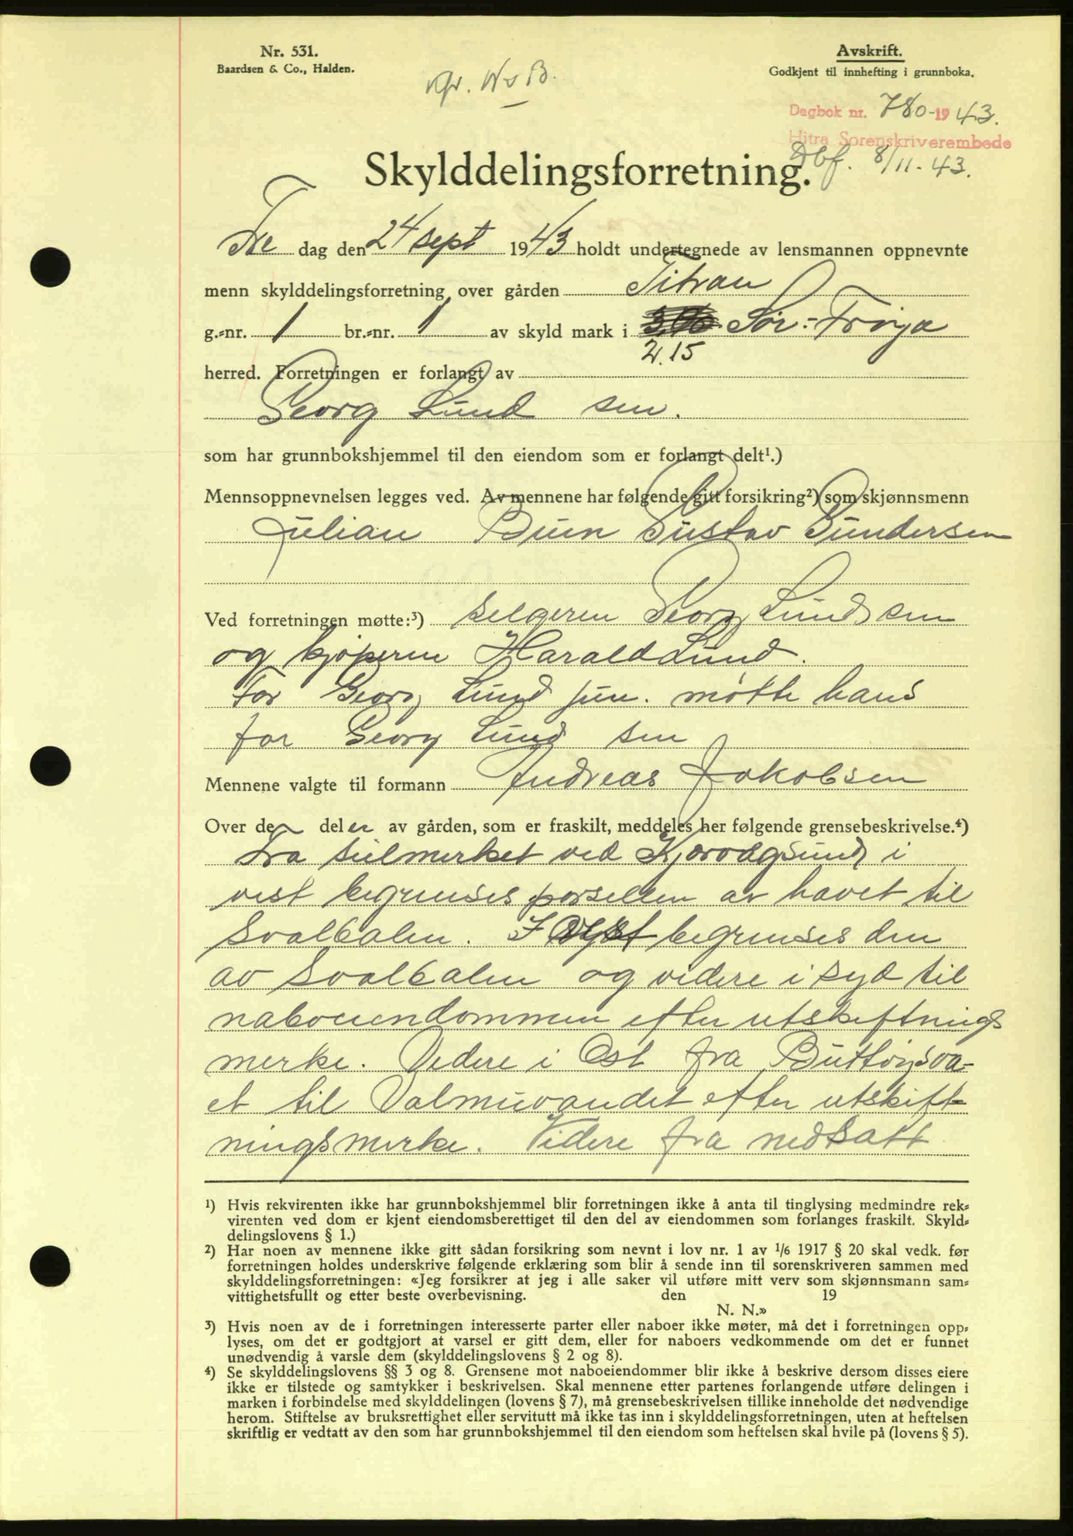 Nr. 531.
Baardsen & Co., Halden.
Avskrift.
Godkjent til innhefting i grunnboka.
Dagbok nr. 780-1943.
Hitra Sorenskriverembede
Dbf. 8/11-43.
Skylddelingsforretning.
Fre dag den 24 sept 1943 holdt undertegnede av lensmannen oppnevnte
menn skylddelingsforretning over gården Titran
g.-nr. 1 br.-nr. 1 av skyld mark i Sør-Frøya
2.15
herred. Forretningen er forlangt av
Georg Lund sen.
som har grunnbokshjemmel til den eiendom som er forlangt delt¹.)
Mennsoppnevnelsen legges ved. Av mennene har følgende gitt forsikring²) som skjønnsmenn
Julian Buin Gustav Gundersen
Ved forretningen møtte:³) selgeren Georg Lund sen
og kjøperen Harald Lund.
For Georg Lund jun. møtte hans
far Georg Lund sen
Mennene valgte til formann Andreas Jakobsen
Over de deler av gården, som er fraskilt, meddeles her følgende grensebeskrivelse.⁴)
Fra ved i
vest begrenses parsellen av havet til
Svalbalen. I begrenses den
av Svalbalen og videre i syd til
naboeiendommen efter utskiftnings
merke. Videre i Øst fra
et til Valmuvandet efter utskift-
ningsmerke. Videre fra nedsatt
¹) Hvis rekvirenten ikke har grunnbokshjemmel blir forretningen ikke å anta til tinglysing medmindre rek-
virenten ved dom er kjent eiendomsberettiget til den del av eiendommen som forlanges fraskilt. Skyld-
delingslovens § 1.)
²) Har noen av mennene ikke gitt sådan forsikring som nevnt i lov nr. 1 av 1/6 1917 § 20 skal vedk. før
forretningen holdes underskrive følgende erklæring som blir å sende inn til sorenskriveren sammen med
skylddelingsforretningen: «Jeg forsikrer at jeg i alle saker vil utføre mitt verv som skjønnsmann sam-
vittighetsfullt og etter beste overbevisning. den 19
N. N.»
³) Hvis noen av de i forretningen interesserte parter eller naboer ikke møter, må det i forretningen opp-
lyses, om det er godtgjort at varsel er gitt dem, eller for naboers vedkommende om det er funnet
unødvendig å varsle dem (skylddelingslovens § 2 og 8).
⁴) Se skylddelingslovens §§ 3 og 8. Grensene mot naboeiendommer blir ikke å beskrive dersom disses eiere
ikke er tilstede og samtykker i beskrivelsen. Skal mennene etter partenes forlangende utføre delingen i
marken i forbindelse med skylddelingen (lovens § 7), må grensebeskrivelsen tillike inneholde det nødvendige
herom. Stiftelse av bruksrettighet eller servitutt må ikke tas inn i skylddelingsforretningen, uten at heftelsen
skriftlig er vedtatt av den som har grunnbokshjemmel til den eiendom som heftelsen skal hvile på (lovens § 5).